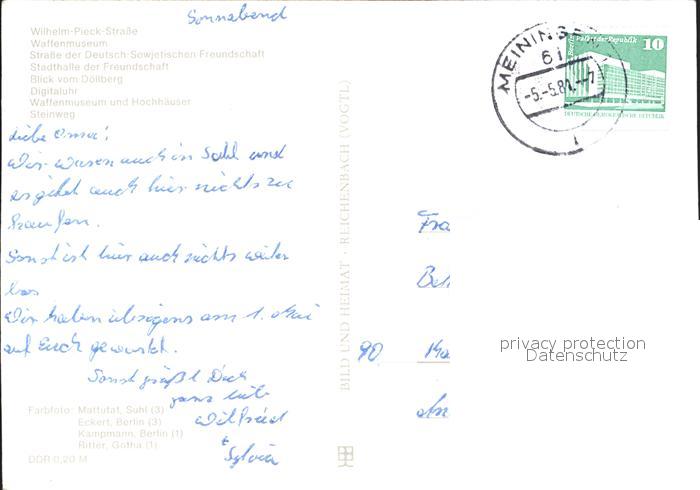 Sonnabend
Wilhelm-Pieck-Straße
Waffenmuseum
Straße der Deutsch-Sowjetischen Freundschaft
Stadthalle der Freundschaft
Blick vom Döllberg
Digitaluhr
Waffenmuseum und Hochhäuser
Steinweg
Liebe Oma!
Wir waren auch in Suhl und
es gibt auch hier nichts zu
kaufen.
Sonst ist hier auch nichts weiter
los
Wir haben übrigens am 1. Mai
auf Euch gewartet.
Sonst grüßt Dich
ganz lieb
Wilfried
+
Sylvia
Farbfoto: Mattutat, Suhl (3)
Eckert, Berlin (3)
Kampmann, Berlin (1)
Ritter, Gotha (1)
DDR 0,20 M
BILD UND HEIMAT · REICHENBACH (VOGTL)
MEININGEN
61
-5.-5.81.--7
Berlin, Palast der Republik
10
DEUTSCHE DEMOKRATISCHE REPUBLIK
Fra
Beh
90
privacy protection
Datenschutz